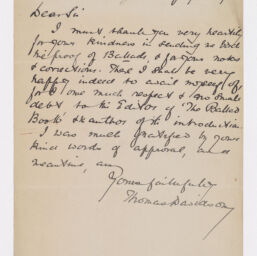 Dear Sir
I must thank you very heartily
for your kindness in sending us both
the proof of Ballads, & for your notes
& corrections. That I shall be very
happy indeed to avail myself of,
for I owe much respect & no small
debt to the Editor of 'The Ballad
Book' & author of its introduction.
I was much gratified by your
kind words of approval, and
meantime, am
Yours faithfully
Thomas Davidson